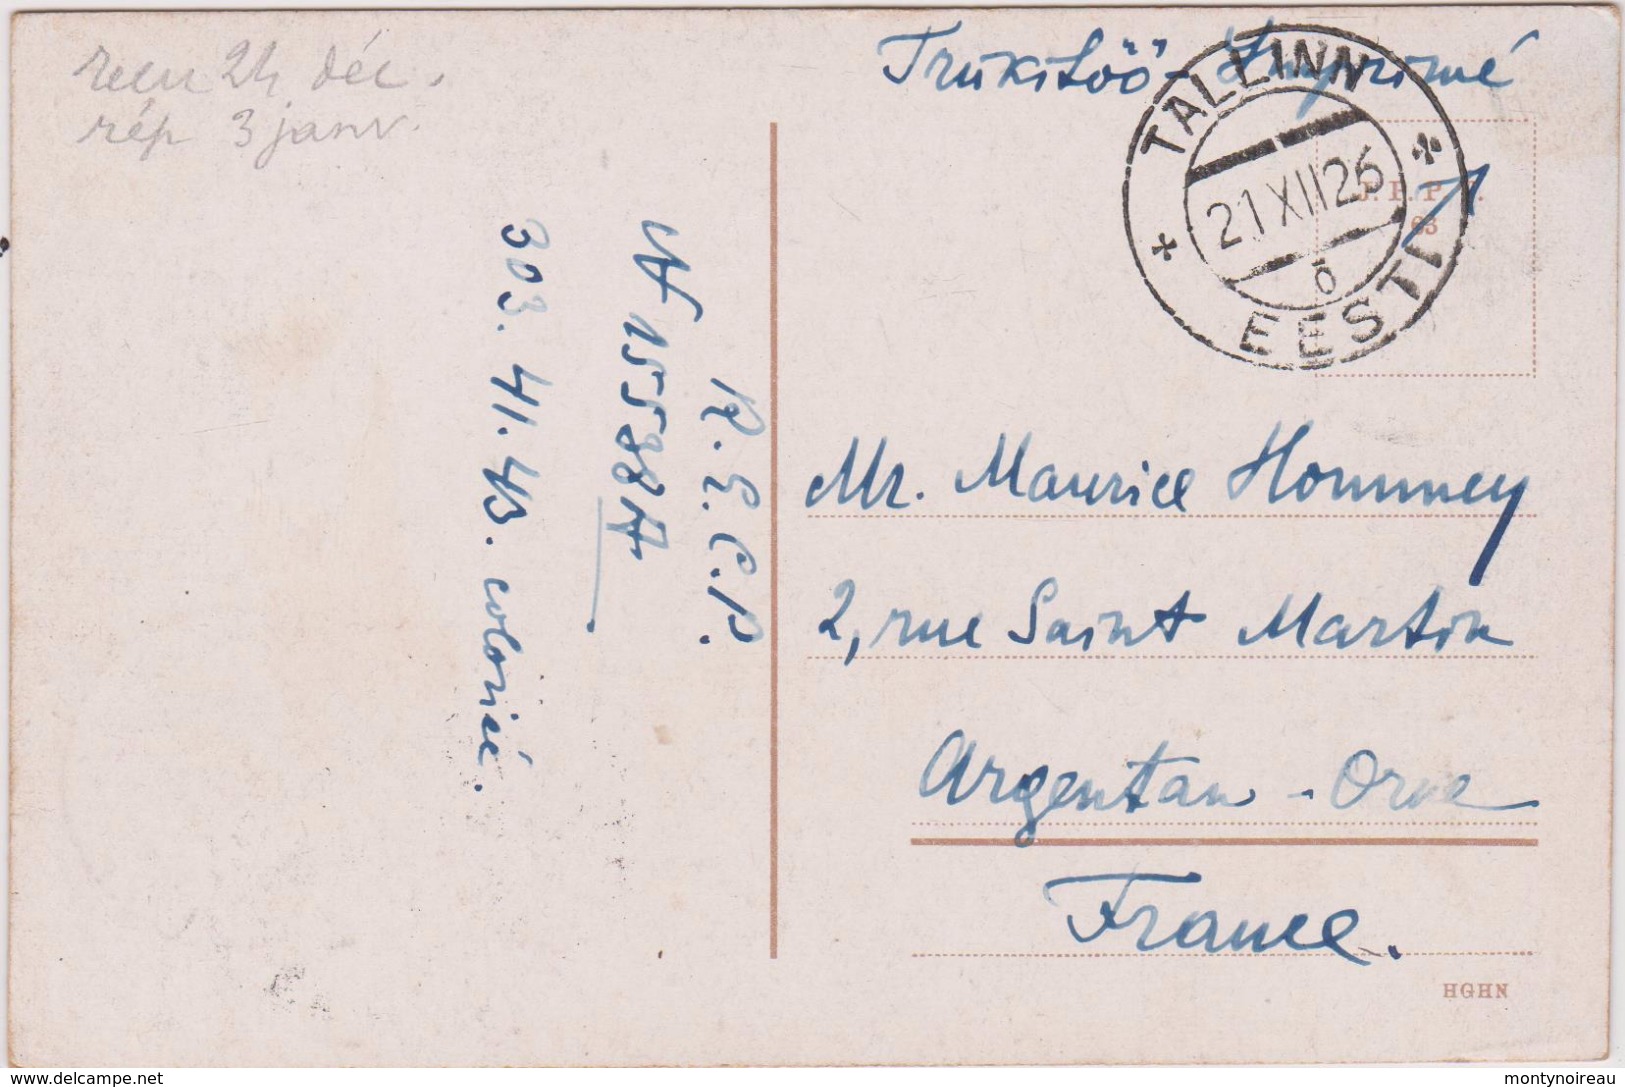 reçu 24 déc.
rép 3 janv.
Trükitöö - Imprimé
TALLINN
21 XII 26
b
EESTI
63
R.E.C.P.
№ 15598 A
303. 41. 43. colorié.
Mr. Maurice Hommey
2, rue Saint Martin
Argentan - Orne
France.
HGHN
www.delcampe.net
montynoireau